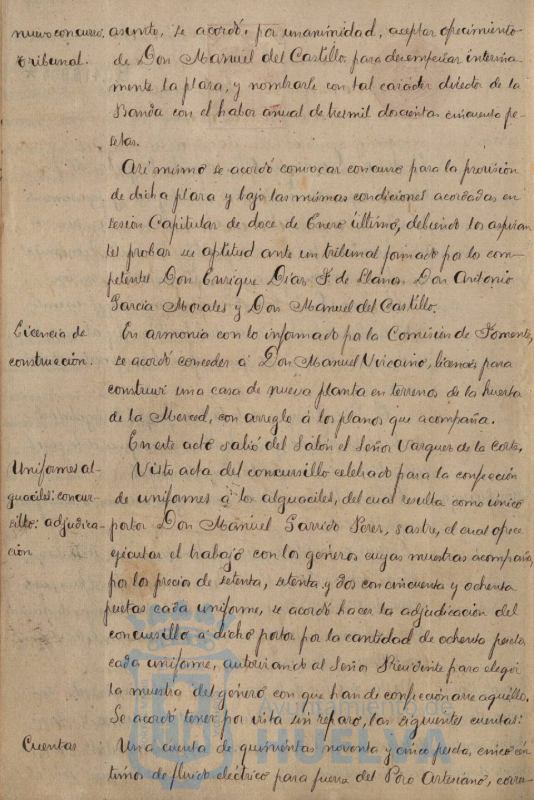 nuevo concurso. asunto, se acordó, por unanimidad, aceptar ofrecimiento
tribunal. de Don Manuel del Castillo, para desempeñar interina-
mente la plaza, y nombrarle con tal carácter director de la
Banda con el haber anual de tresmil doscientas cincuenta pe-
setas.
Así mismo se acordó convocar concurso para la provisión
de dicha plaza y bajo las mismas condiciones acordadas en
sesión Capitular de doce de Enero último, debiendo los aspiran-
tes probar su aptitud ante un tribunal formado por los com-
petentes Don Enrique Díaz F. de Llanos Don Antonio
García Morales y Don Manuel del Castillo.
Licencia de En armonía con lo informado por la Comisión de Fomento,
construcción. se acordó conceder á Don Manuel Vizcaíno, licencia para
construir una casa de nueva planta en terrenos de la huerta
de la Merced, con arreglo á los planos que acompaña.
En este acto salió del Salón el Señor Vázquez de la Corte.
Uniformes al- Visto acta del concursillo celebrado para la confección
guaciles: concur- de uniformes á los alguaciles, del cual resulta como único
sillo: adjudica- portor Don Manuel Garrido Perez, sastre, el cual ofrece
ción ejecutar el trabajo con los géneros cuyas muestras acompaña,
por los precios de setenta, setenta y dos con cincuenta y ochenta
pesetas cada uniforme, se acordó hacer la adjudicación del
concursillo a dicho portor por la cantidad de ochenta pesetas
cada uniforme, autorizando al Señor Presidente para elegir
la muestra del género con que han de confeccionarse aquéllos.
Se acordó tener por vista sin reparo, las siguientes cuentas:
Cuentas Una cuenta de quinientas noventa y cinco pesetas, cinco cén-
timos de fluido eléctrico para fuerza del Pozo Artesiano, corres-
Ayuntamiento de
HUELVA